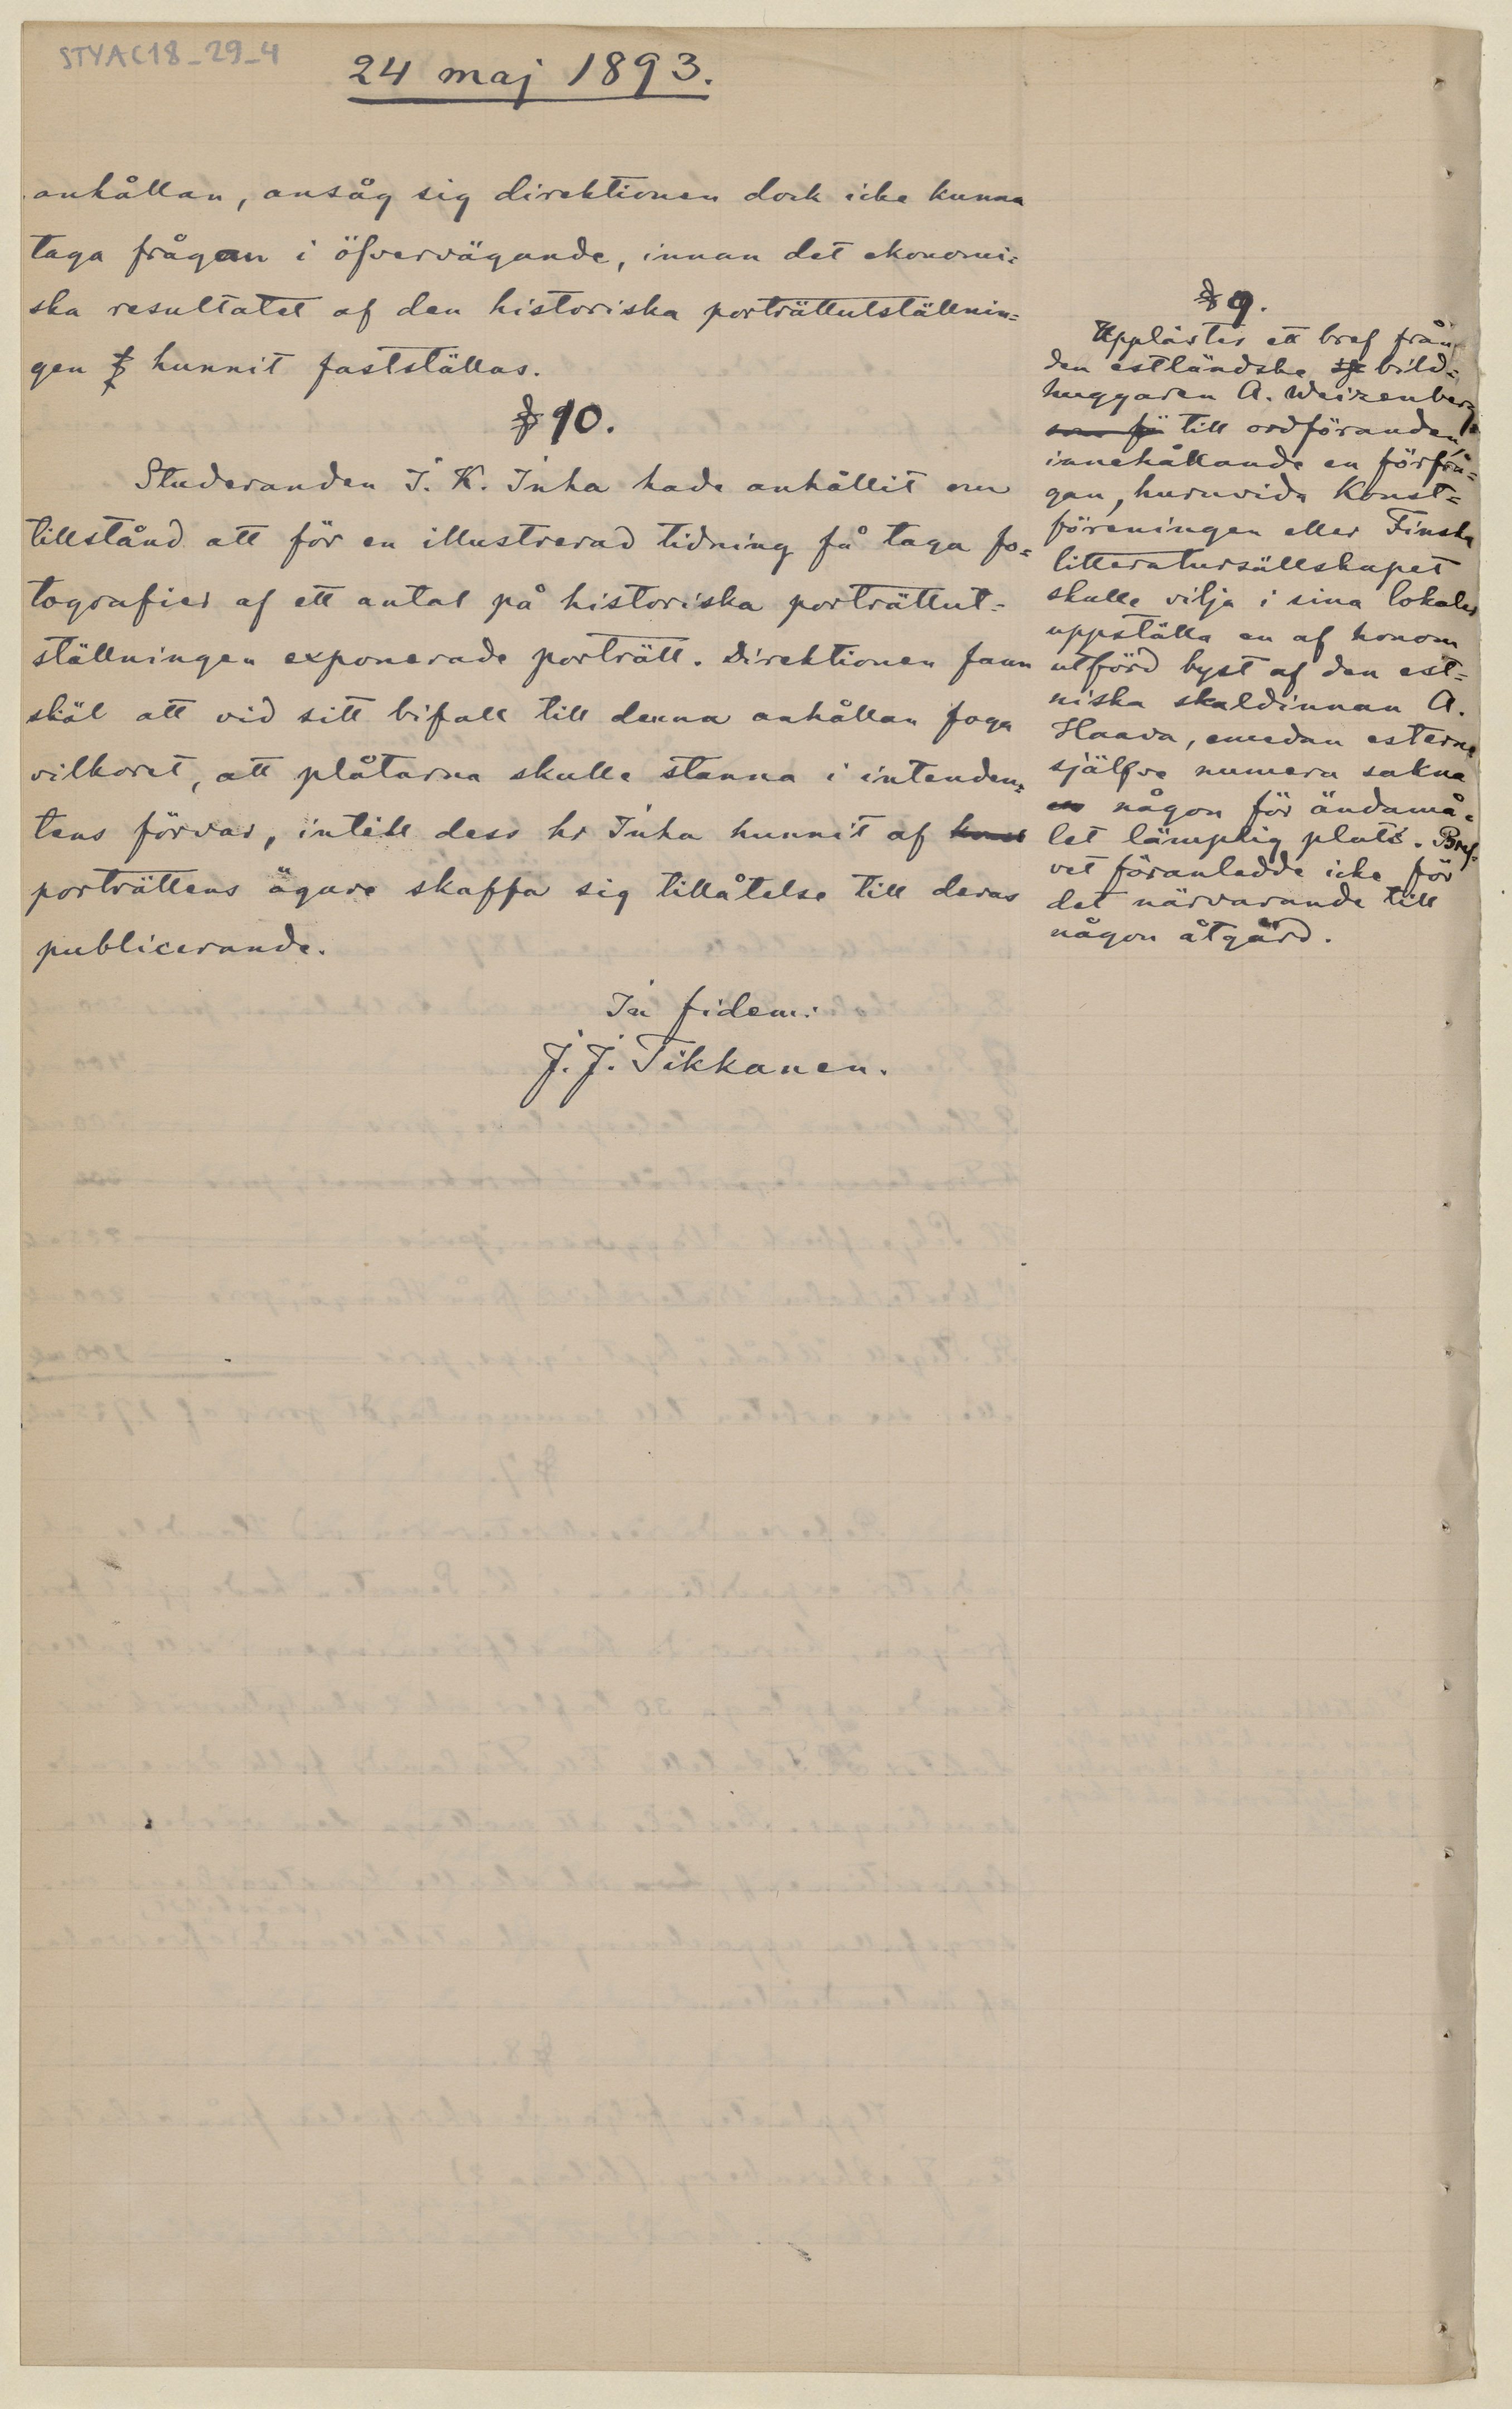 STYAC18_29_4
24 maj 1893.
anhållan, ansåg sig direktionen dock icke kunna
taga frågan i öfvervägande, innan det ekonomi=
ska resultatet af den historiska porträttutställnin=
gen hunnit fastställas.
§ 10.
Studeranden I. K. Inha hade anhållit om
tillstånd att för en illustrerad tidning få taga fo=
tografier af ett antal på historiska porträttut=
ställningen exponerade porträtt. Direktionen fann
skäl att vid sitt bifall till denna anhållan foga
vilkoret, att plåtarna skulle stanna i intenden=
tens förvar, intill dess hr Inha hunnit af
porträttens ägare skaffa sig tillåtelse till deras
publicerande.
In fidem:
J. J. Tikkanen.
§ 9.
Upplästes ett bref från
den estländske bild=
huggaren A. Weizenberg
till ordföranden,
innehållande en förfrå=
gan, huruvida Konst=
föreningen eller Finska
litteratursällskapet
skulle vilja i sina lokaler
uppställa en af honom
utförd byst af den est=
niska skaldinnan A.
Haava, emedan esterna
själfve numera sakna
någon för ändamå=
let lämplig plats. Bref=
vet föranledde icke för
det närvarande till
någon åtgärd.